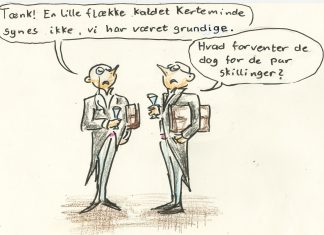 Tænk! En lille flække kaldet Kerteminde
synes ikke, vi har været grundige.
Hvad forventer de
dog for de par
skillinger?